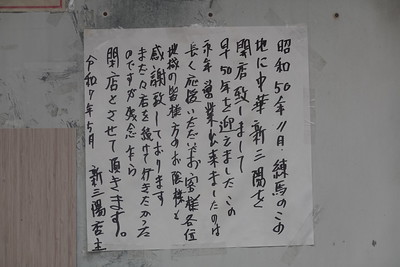 昭和50年11月練馬のこの
地に中華新三陽を
開店致しまして
早50年を迎えましたこの
永年営業出来ましたのは
長く応援いただいたお客様各位
地域の皆様方のお陰様と
感謝致しております
まだ〻店を続けて行きたかった
のですが残念ながら
閉店とさせて頂きます。
令和7年5月 新三陽店主